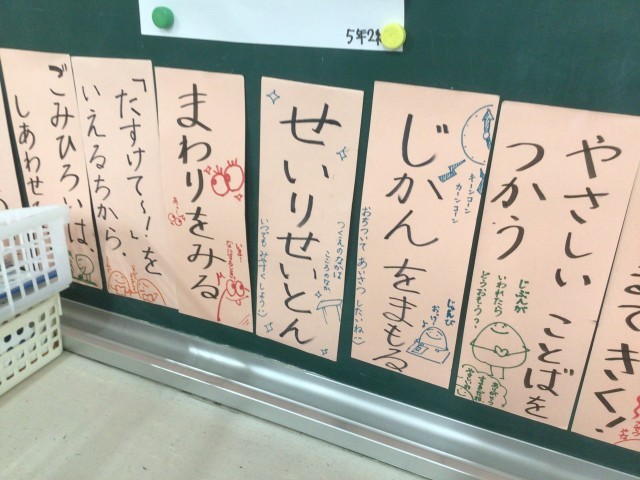 5年2組
てきく!
やさしい ことばを
つかう
じぶんが
いわれたら
どうおもう?
じかんをまもる
キーンコーン
カーンコーン
おちついて あいさつ したいね
じゅんび
おっけー
せいりせいとん
つくえのなかは
こころのなか
いつも みやすく しよう
まわりをみる
「たすけて〜!」を
いえるちから。
ごみひろいは、
しあわせ